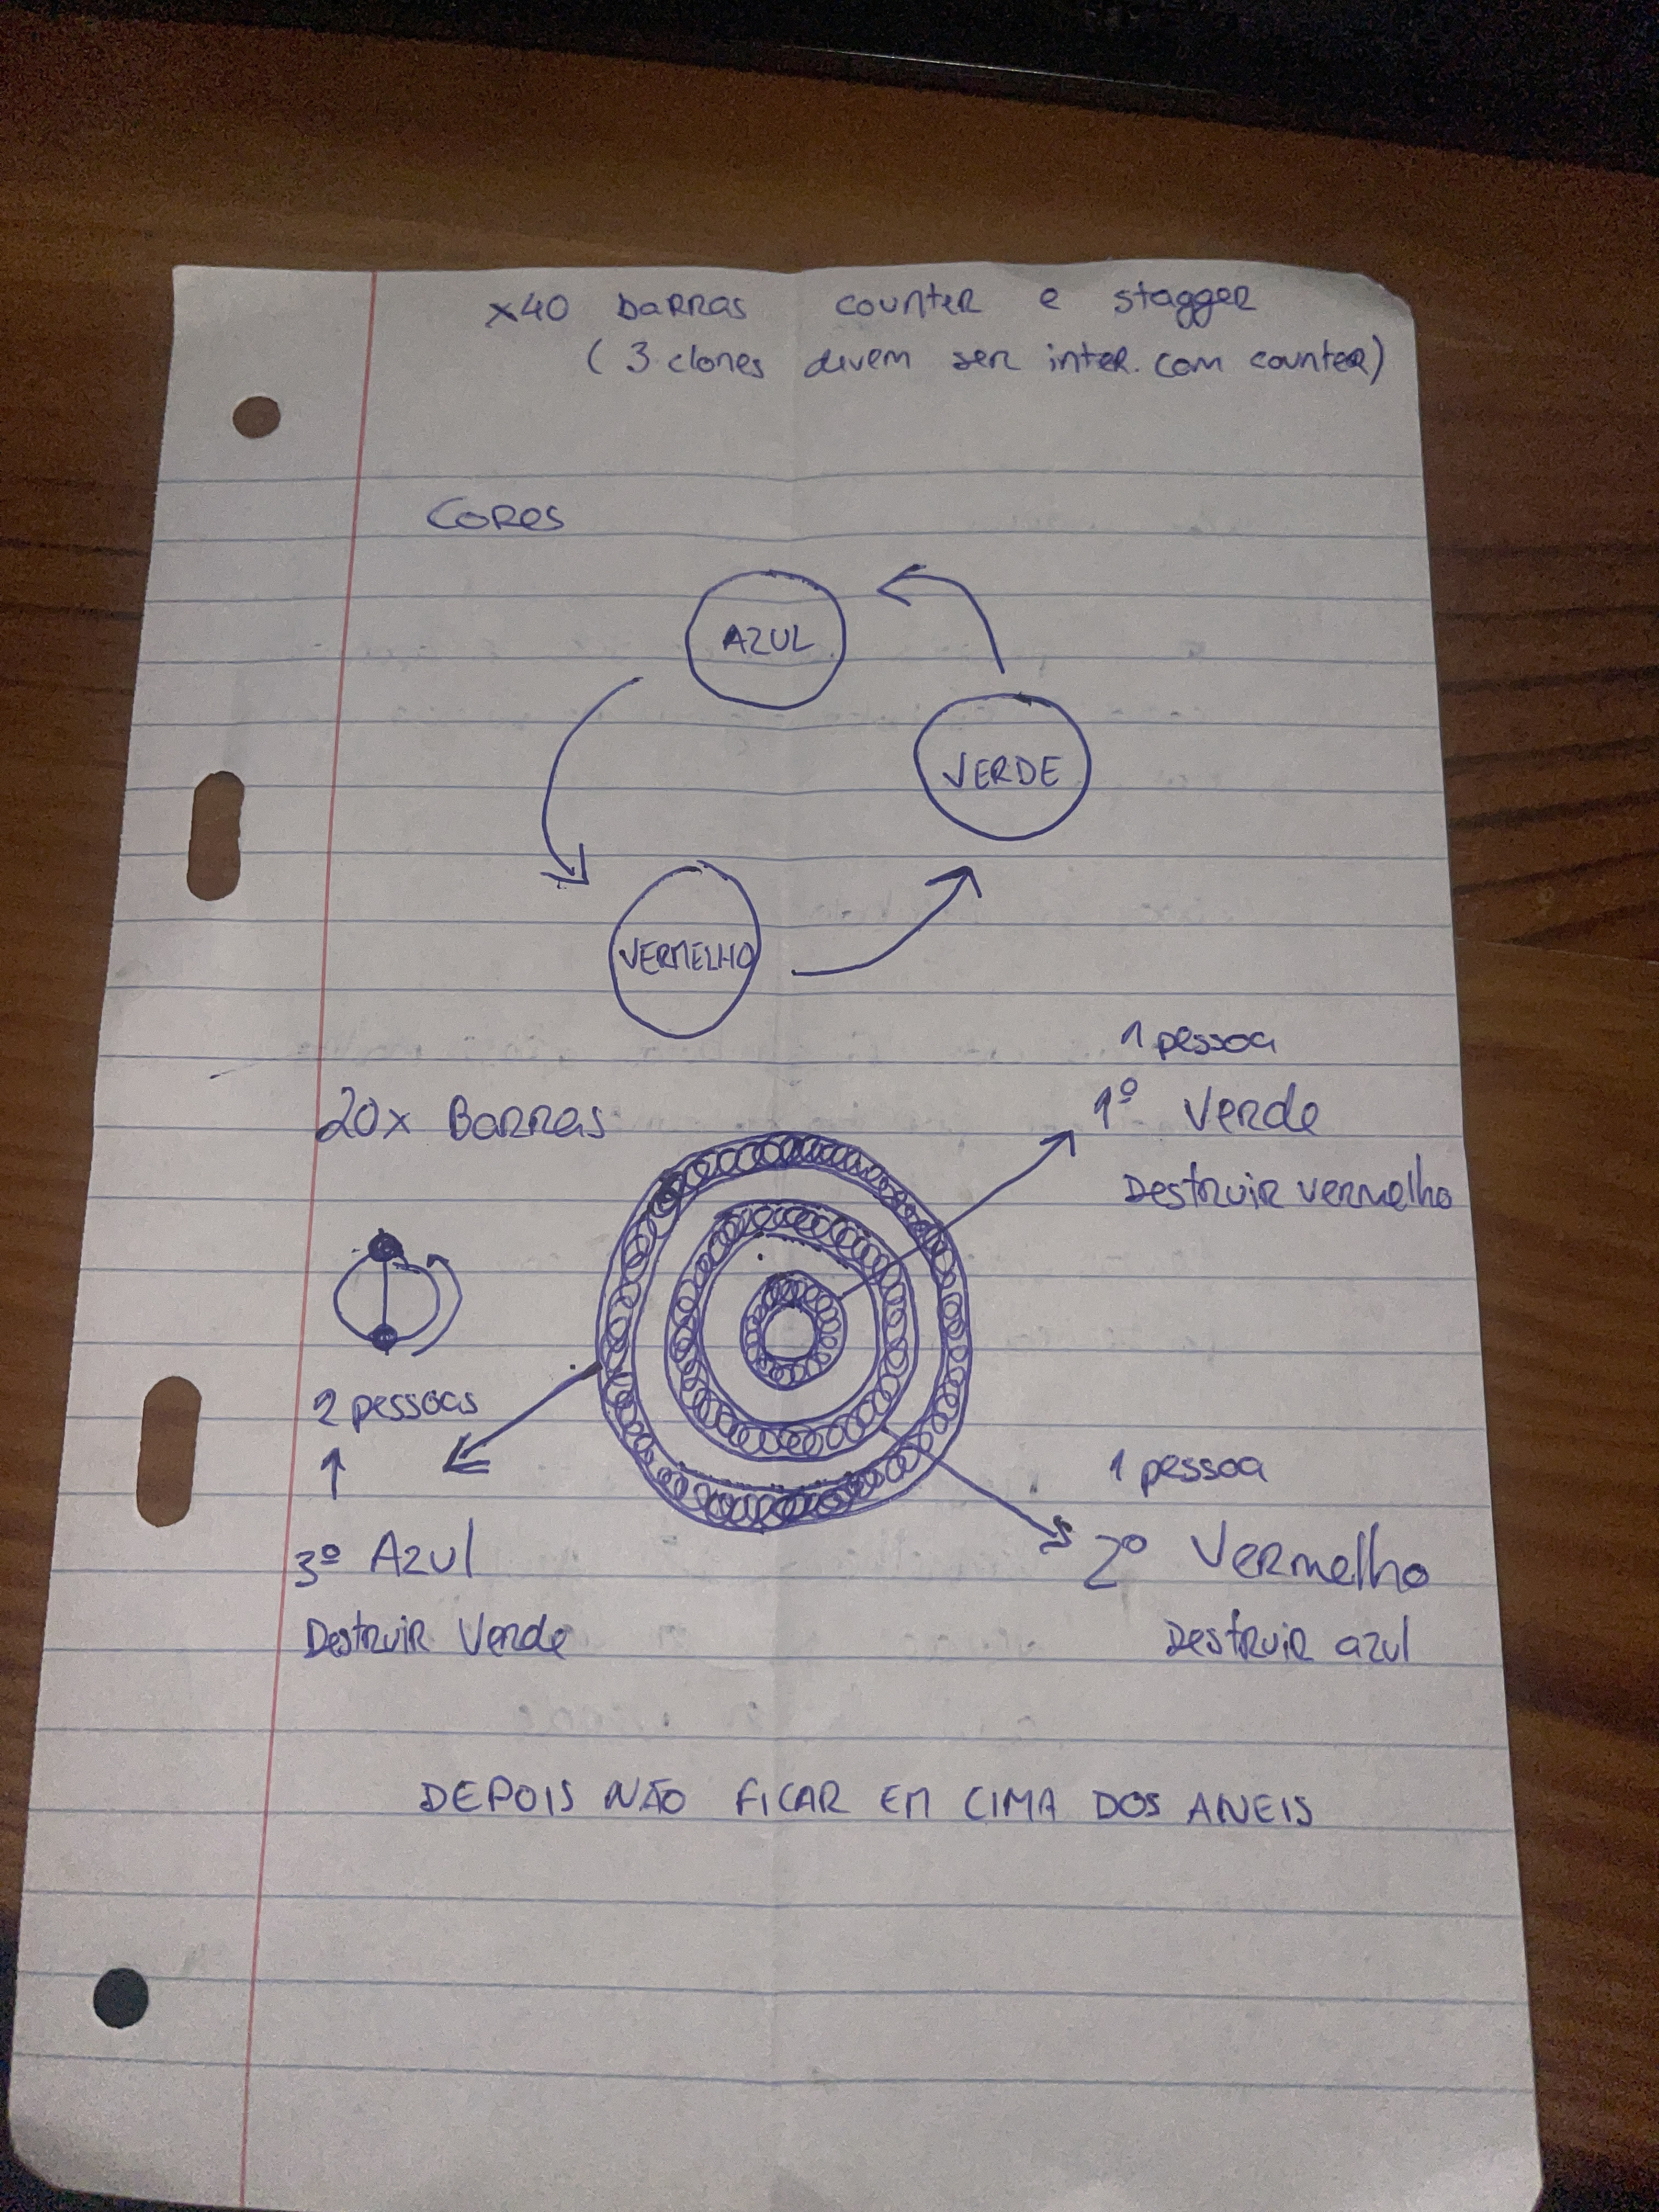 x40 barras counter e stagger
(3 clones devem ser inter. com counter)
Cores
AZUL
VERDE
VERMELHO
1 pessoa
20x Barras
1º Verde
Destruir vermelho
2 pessoas
1 pessoa
3º Azul
2º Vermelho
Destruir Verde
Destruir azul
DEPOIS NÃO FICAR EM CIMA DOS ANEIS